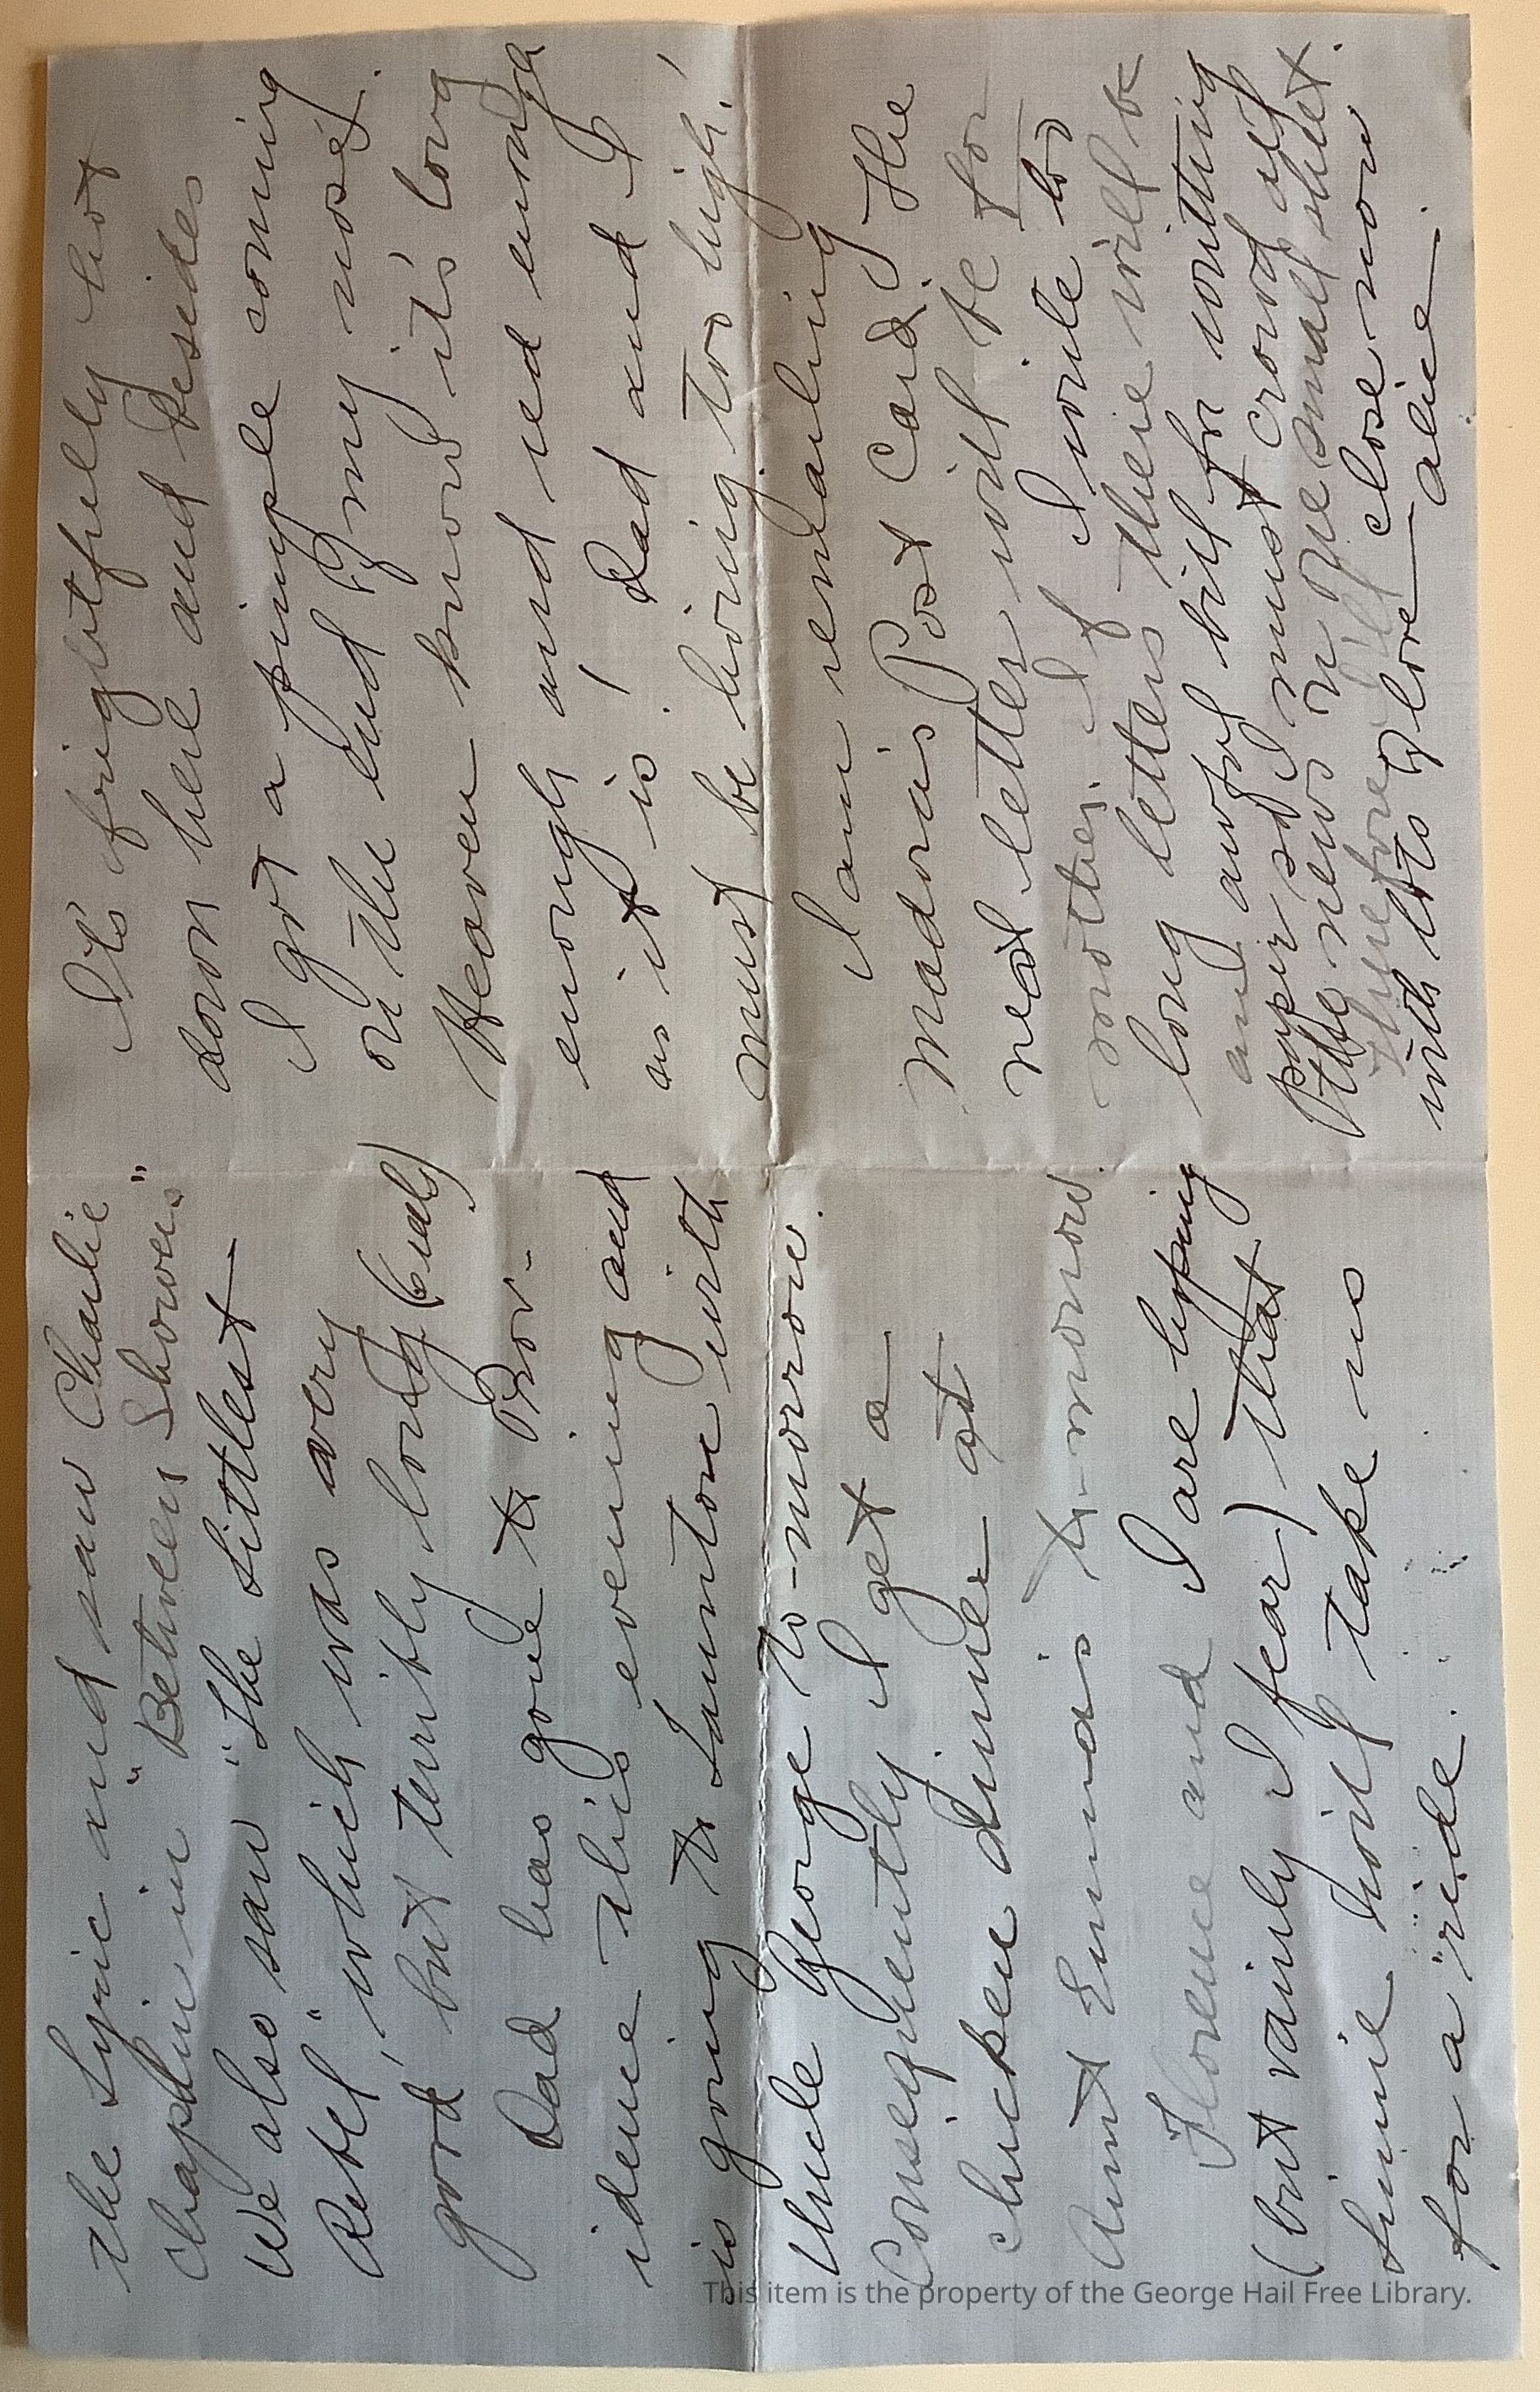 the Lyric and saw Charlie
Chaplin in "Between Showers"
We also saw "The Littlest
Rebel", which was very
good, but terribly long (6 reels)
Dad has gone to Prov-
idence this evening and
is going to Taunton with
Uncle George to-morrow.
Consequently I get a
chicken dinner at
Aunt Emmas to-morrow.
Florence and I are hoping
(but vainly I fear) that
Linnie will take us
for a ride.
It's frightfully hot
down here and besides
I got a pimple coming
on the end of my nose.
Heaven knows it's long
enough and red enough
as it is! Dad and I
must be living too high!
I am enclosing
Madora's Post Card. The
next letter will be for
mother. If I write too
long letters there will be
an awful bill for writing
paper so I must crowd all
the news on one small sheet.
Therefore I'll close now
with lots of love — Alice —
This item is the property of the George Hail Free Library.